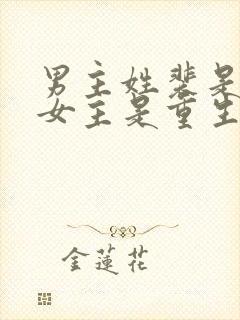 男主姓裴是
女主是重生
金蓮花